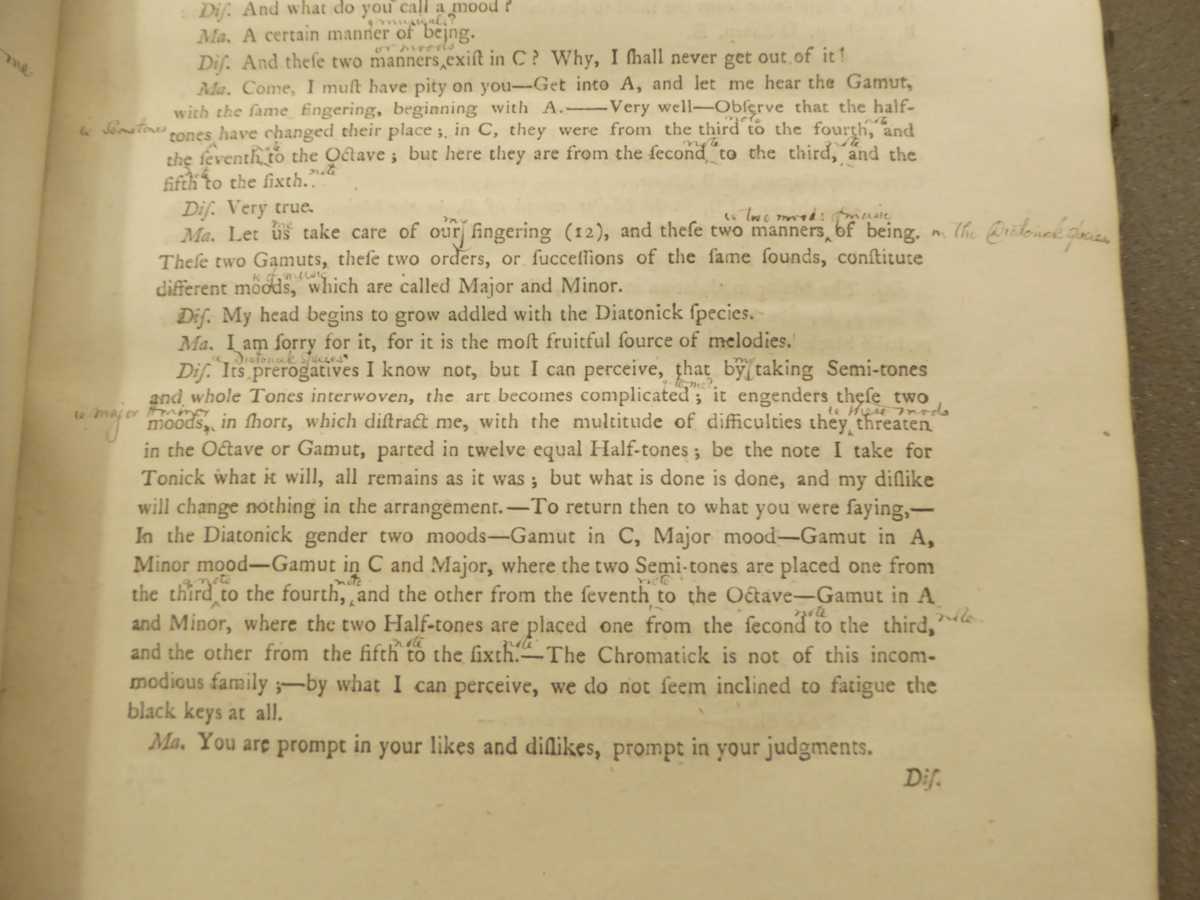 Diſ. And what do you call a mood?
a musical?
Ma. A certain manner of being.
or moods
Diſ. And theſe two manners exiſt in C? Why, I ſhall never get out of it!
me
Ma. Come, I muſt have pity on you—Get into A, and let me hear the Gamut,
with the ſame fingering, beginning with A.——Very well—Obſerve that the half-
note note
tones have changed their place; in C, they were from the third to the fourth, and
note note note
the ſeventh to the Octave; but here they are from the ſecond to the third, and the
note note
fifth to the ſixth.
Diſ. Very true.
me my two moods of music
Ma. Let us take care of our fingering (12), and theſe two manners of being. in the Diatonick ſpecies
Theſe two Gamuts, theſe two orders, or ſucceſſions of the ſame ſounds, conſtitute
of music
different moods, which are called Major and Minor.
Diſ. My head begins to grow addled with the Diatonick ſpecies.
Ma. I am ſorry for it, for it is the moſt fruitful ſource of melodies.
Diatonick species my
Diſ. Its prerogatives I know not, but I can perceive, that by taking Semi-tones
to me?
and whole Tones interwoven, the art becomes complicated; it engenders theſe two
major & minor these mods
moods, in ſhort, which diſtract me, with the multitude of difficulties they threaten
in the Octave or Gamut, parted in twelve equal Half-tones; be the note I take for
Tonick what it will, all remains as it was; but what is done is done, and my diſlike
will change nothing in the arrangement.—To return then to what you were ſaying,—
In the Diatonick gender two moods—Gamut in C, Major mood—Gamut in A,
Minor mood—Gamut in C and Major, where the two Semi-tones are placed one from
note note note
the third to the fourth, and the other from the ſeventh to the Octave—Gamut in A
note note
and Minor, where the two Half-tones are placed one from the ſecond to the third,
note note
and the other from the fifth to the ſixth.—The Chromatick is not of this incom-
modious family;—by what I can perceive, we do not ſeem inclined to fatigue the
black keys at all.
Ma. You are prompt in your likes and diſlikes, prompt in your judgments.
Diſ.